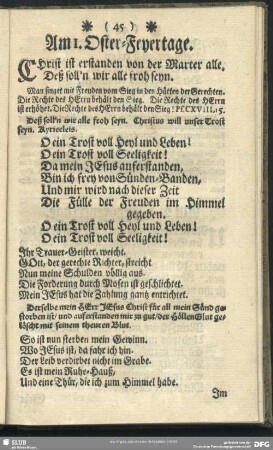 * (45) *
Am 1. Oster-Feyertage.
CHrist ist erstanden von der Marter alle,
Deß soll'n wir alle froh seyn.
Man singet mit Freuden vom Sieg in den Hütten der Gerechten.
Die Rechte des HErrn behält den Sieg. Die Rechte des HErrn
ist erhöhet. Die Rechte des HErrn behält den Sieg!
Deß soll'n wir alle froh seyn. Christus will unser Trost
seyn. Kyrieeleis.
O ein Trost voll Heyl und Leben!
O ein Trost voll Seeligkeit!
Da mein JEsus auferstanden,
Bin ich frey von Sünden-Banden,
Und mir wird nach dieser Zeit
Die Fülle der Freuden im Himmel
gegeben.
O ein Trost voll Heyl und Leben!
O ein Trost voll Seeligkeit!
Ihr Trauer-Geister, weicht.
GOtt, der gerechte Richter, streicht
Nun meine Schulden völlig aus.
Die Forderung durch Mosen ist geschlichtet.
Mein JEsus hat die Zahlung gantz entrichtet.
Derselbe mein HErr JEsus Christ für all mein Sünd ge-
storben ist/ und auferstanden mir zu gut/ der Höllen Glut ge-
löscht mit seinem theuren Blut.
So ist nun sterben mein Gewinn.
Wo JEsus ist, da fahr ich hin.
Der Leib verdirbet nicht im Grabe.
Es ist mein Ruhe-Hauß,
Und eine Thür, die ich zum Himmel habe.
Im
SLUB
DFG